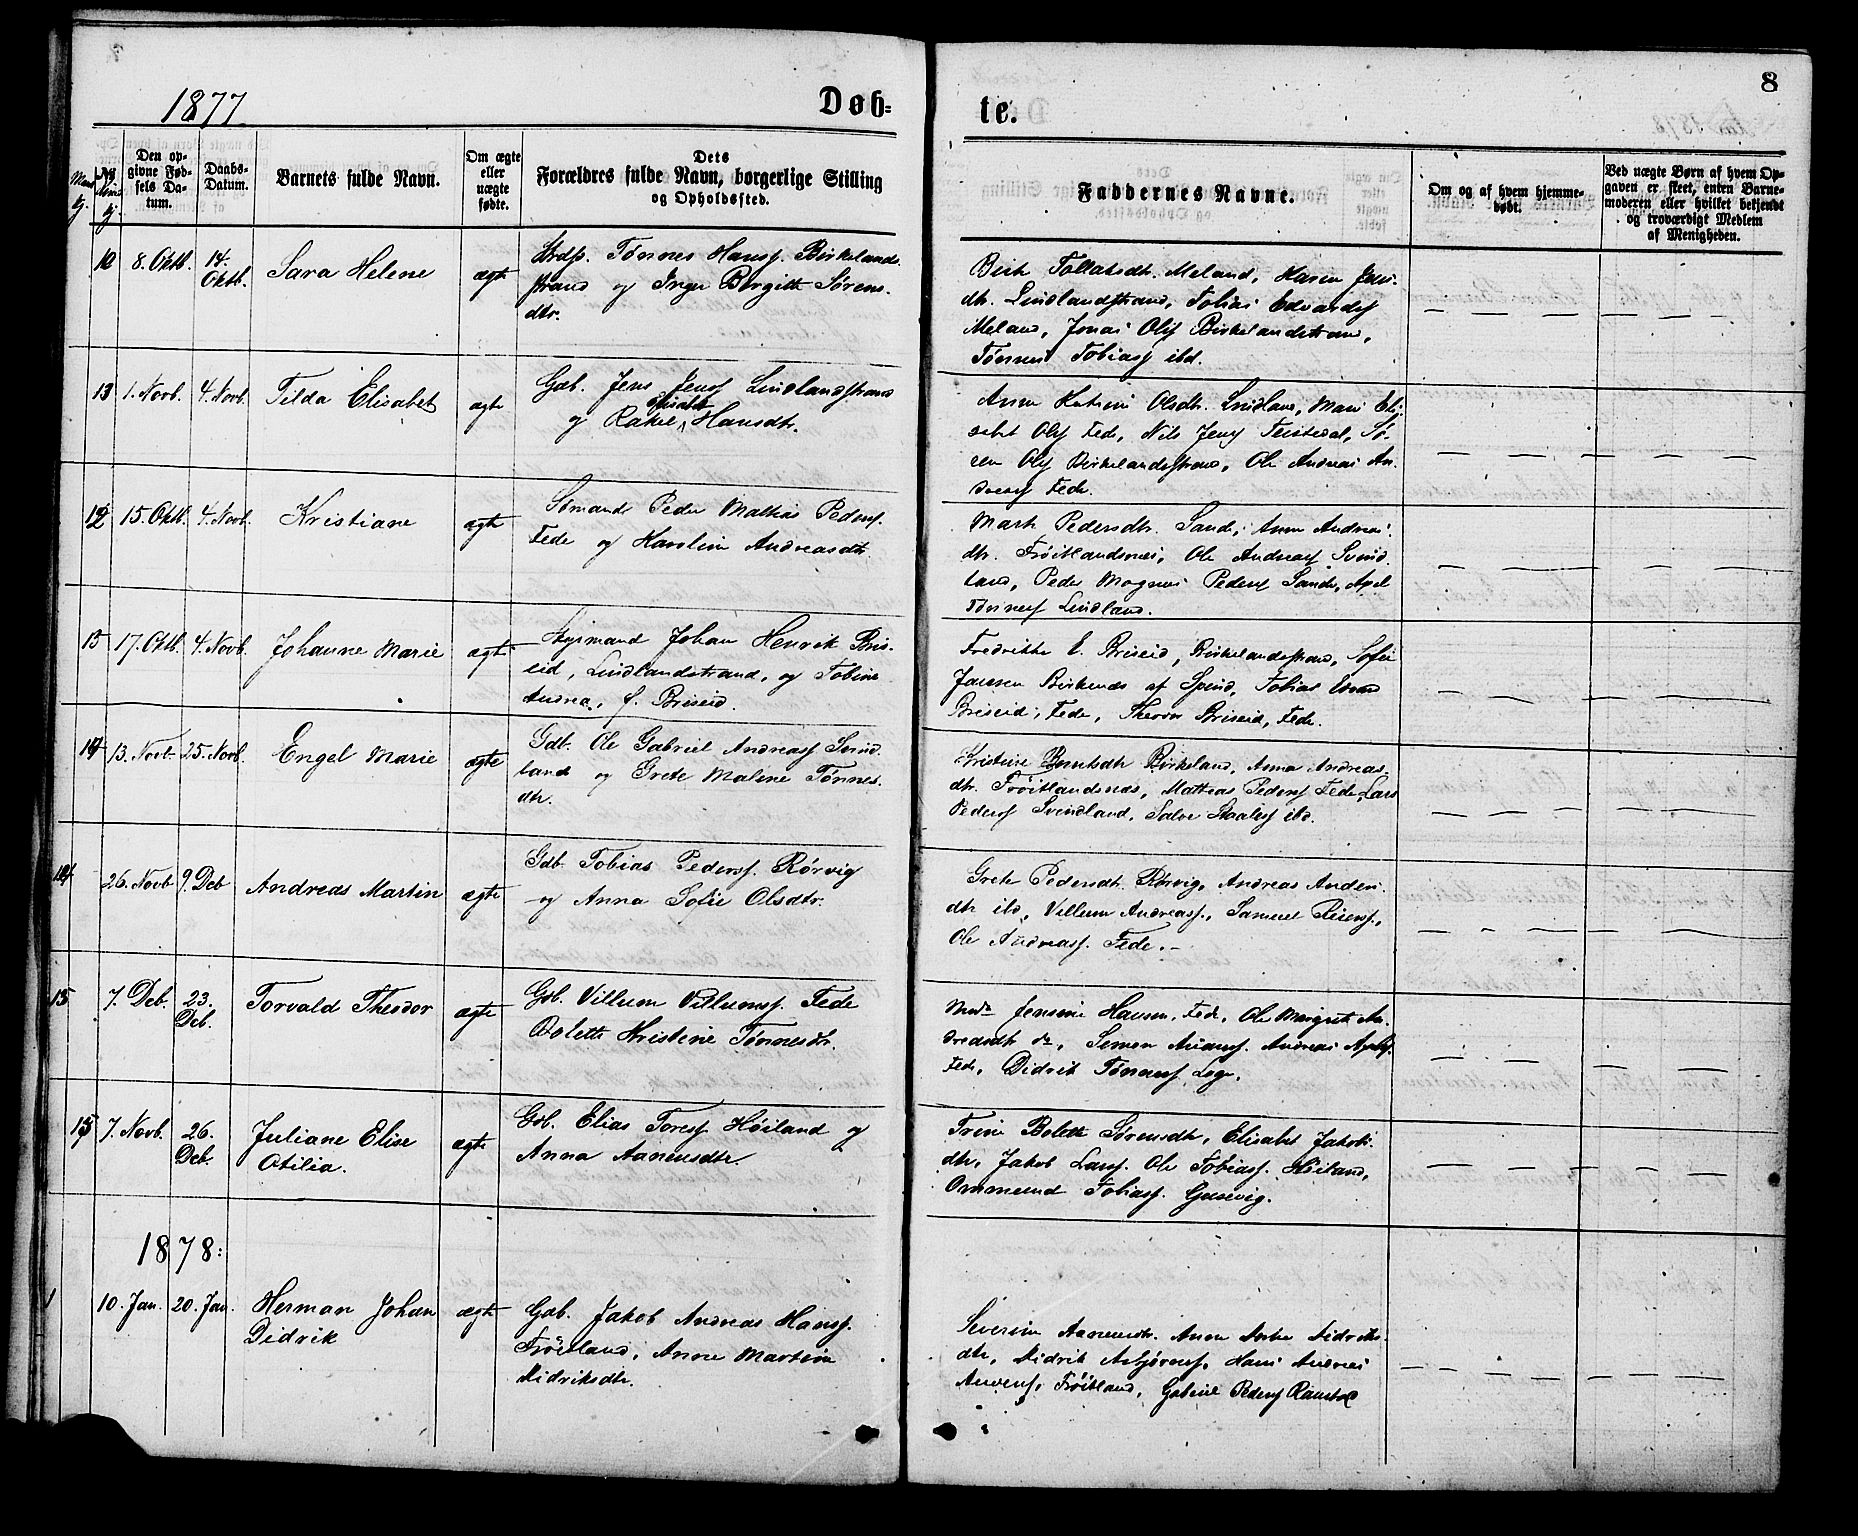 8
1877
Døb-
te.
Den op-
givne Fød-
sels Da-
tum.
Daabs-
Datum.
Barnets fulde Navn.
Om ægte
eller
uægte
fødte.
Dets
Forældres fulde Navn, borgerlige Stilling
og Opholdssted.
Faddernes Navne.
Om og af hvem hjemme-
døbt.
Ved uægte Børn af hvem Op-
gaven er skeet, enten Barne-
moderen eller hvilket bekjendt
og troværdigt Medlem
af Menigheden.
8. Oktb. 14.
Oktb.
Sara Helene
ægte
Strdp. Tønnes Hanss. Birkelands-
strand og Inger Birgitte Sørens-
dtr.
Tollaksdtr. Meland, Karen Jens-
dtr. Lindlandstrand, Tobias Edvards.
Meland, Jonas Ols. Birkelandstrand,
Tønnes Tobiass. ibd.
13 1. Novb. 4. Novb. Tilda Elisabet
ægte
Gdb. Jens Jens. Lindlandsstrand
Elisabet
og Rakel Hansdtr.
Anna Katrine Olsdtr. Lindland, Mari Eli-
sabet Ols. Fede, Nils Jens. Feistedal, Sø-
ren Ols. Birkelandsstrand, Ole Andreas An-
dreass. Fede.
12 15. Oktb. 4. Novb. Kristiane
ægte
Sømand Peder Mathias Peders.
Fede og Karoline Andreasdtr.
Pedersdtr. Sande, Anna Andreas-
dtr. Frøitlandsnes, Ole Andreas. Svind-
land, Peder Magnus Peders. Sande, Axel
Tønnes. Lindland.
15 17. Oktb. 4. Novb. Johanne Marie
ægte
Styrmand Johan Henrik Bris-
eid, Lindlandstrand, og Tobine
Andrea, f. Briseid.
Fredrikke E. Briseid, Birkelandsstrand, Sofie
Jansen Birkenes af Spind, Tobias
Briseid, Fede, Briseid, Fede.
14 13. Novb. 25. Novb. Engel Marie
ægte
Gdb. Ole Gabriel Andreass. Svind-
land og Grete Malene Tønnes-
dtr.
Kristine Berntsdtr. Birkeland, Anna Andreas-
dtr. Frøitlandsnes, Mathias Peders. Fede, Lars
Peders. Svindland, Salve Staales. ibd.
14 26. Novb 9. Deb Andreas Martin
ægte
Gdb. Tobias Peders. Rørvig
og Anna Sofie Olsdtr.
Grete Pedersdtr. Rørvig, Andreas
dtr. ibd, Villum Andreass., Samuel
Ole Andreass. Fede.
15 7. Deb. 23.
Deb.
Torvald Theodor
ægte
Gdb. Villum Villums. Fede
Bolette Kristine Tønnesdtr.
Jensine Hansen, Fede, Ole Margrete An-
dreasdtr. do, Simon Andreas
Fede, Didrik Tønness. Loge.
15 7. Novb. 26.
Deb.
Juliane Elise
Otilia.
ægte
Gdb. Elias Toress. Høiland og
Anna Aanensdtr.
Trine Bolette Sørensdtr, Elisabet Jakobs-
dtr, Jakob Larss. Ole Tobiass. Høiland,
Ommund Tobiass. Gusevig.
1878:
1 10. Jan. 20. Jan. Herman Johan
Didrik
ægte
Gdb. Jakob Andreas Hanss.
Frøitland, Anne Martine
Didriksdtr.
Severine Aanensdtr. Anne Didriks-
dtr, Didrik Asbjørns, Hans Andreas
Frøitland, Gabriel Peders Ramsdal